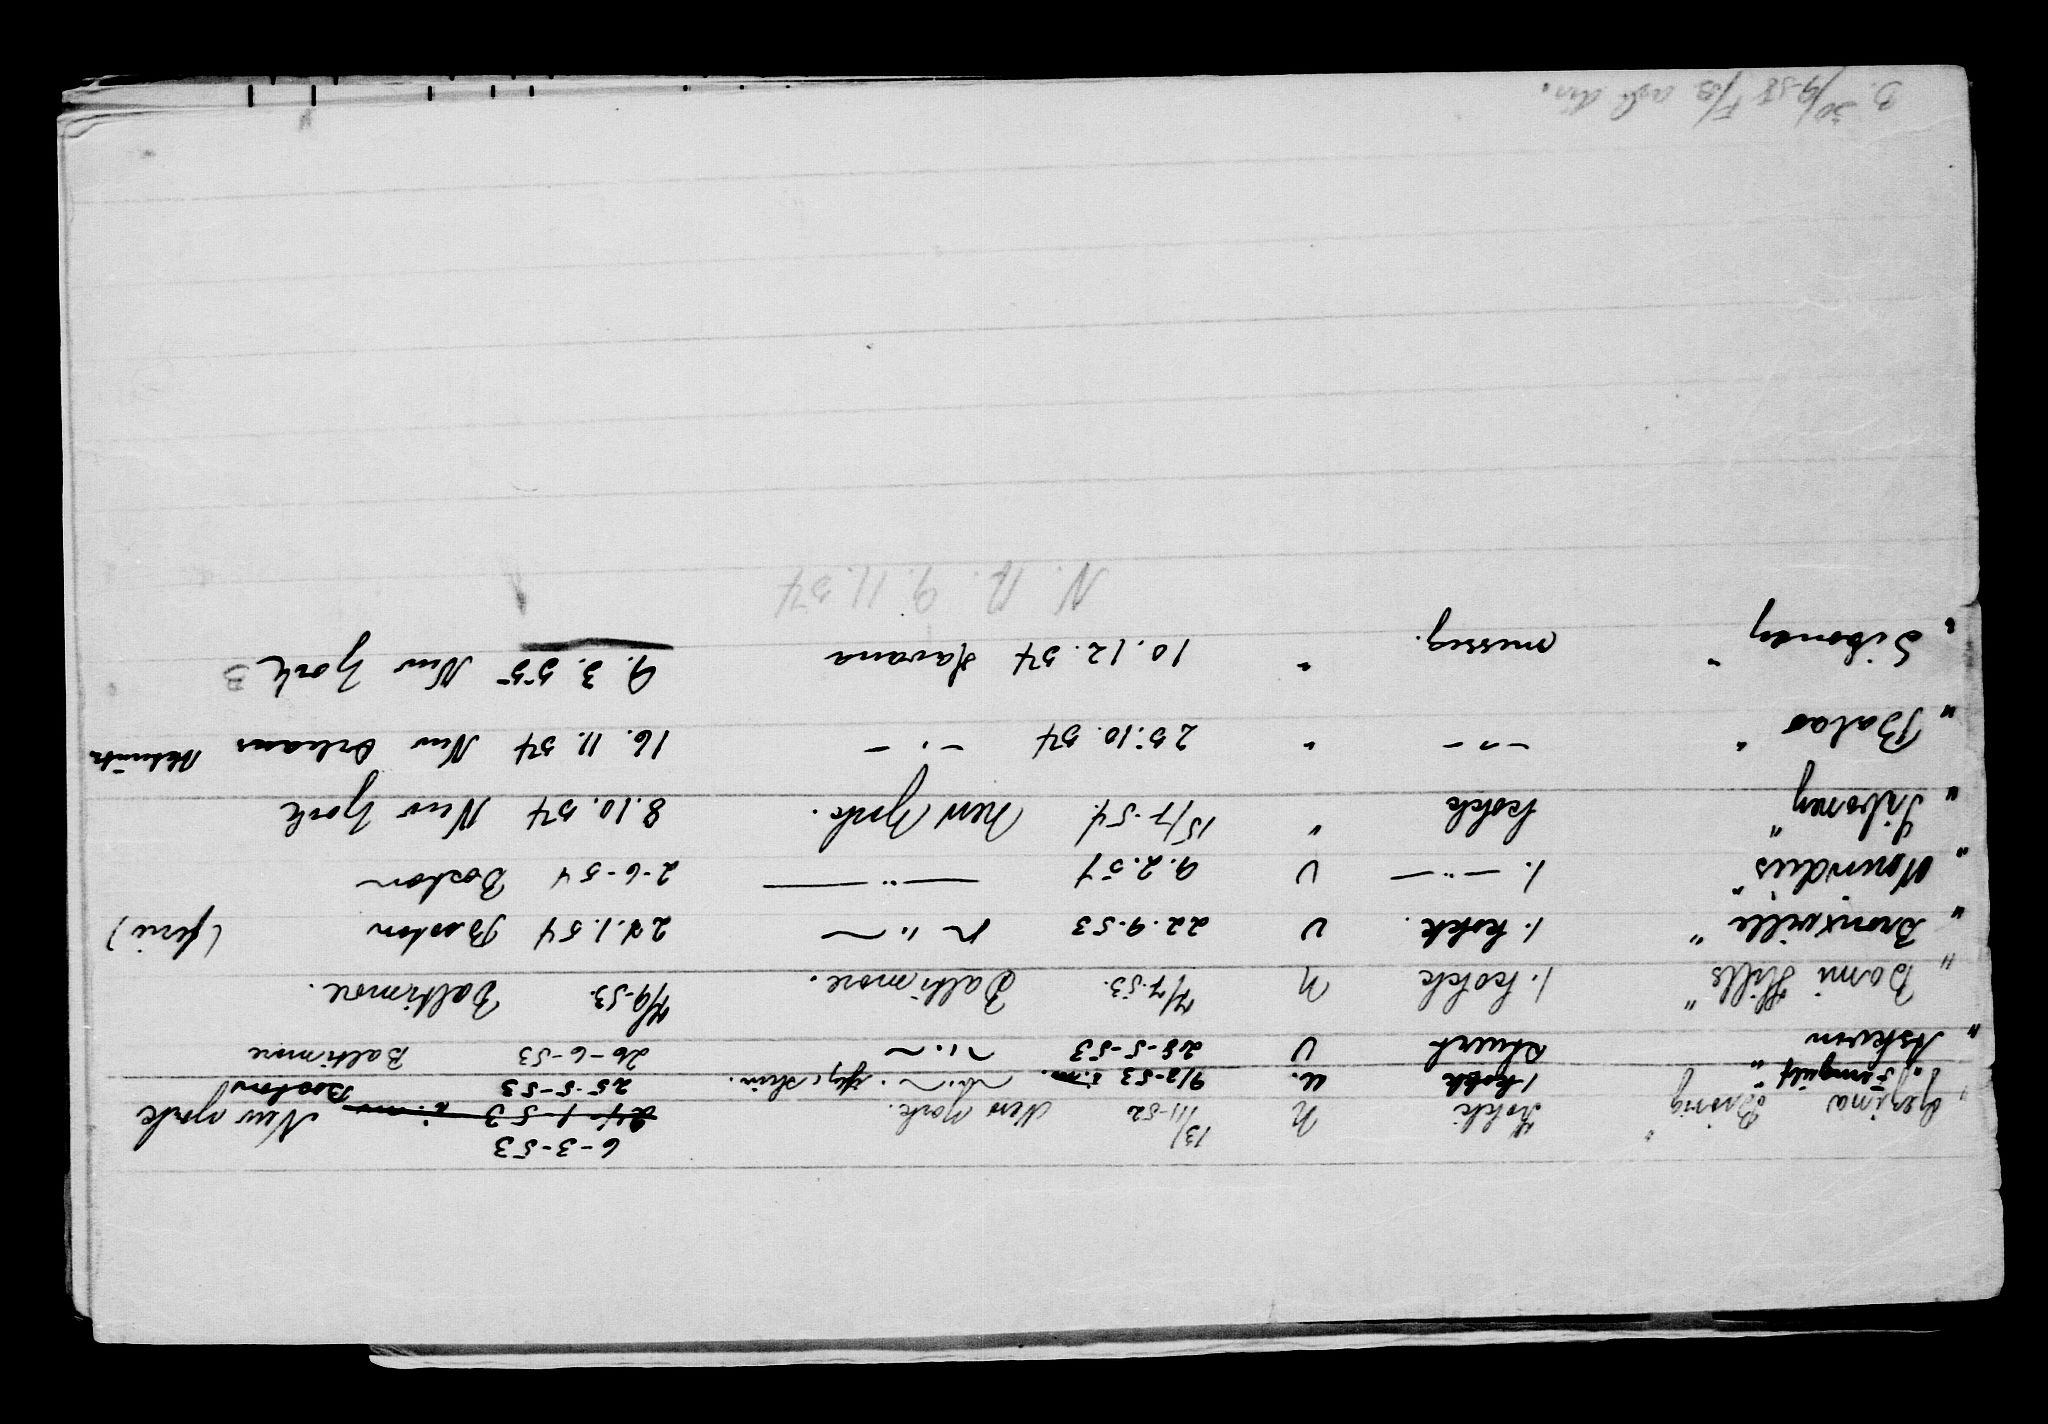 6-3-53
" Gezina Brovig " Kokk N 13/11-52 New York. 24-1-53 New York
" Ferngulf " 1. kokk u. 9/2-53 - " - 25-5-53 Boston
" Askvin " Stuert U 28-5-53 - " - 26-6-53 Baltimore
" Bomi Hills " 1. kokk N 7/7-53. Baltimore. 4/9-53. Baltimore.
" Bronxville " 1. kokk. U 22.9.53 - " - 27.1.54 Boston (ferie)
" Mourndis " 1. - " - U 9.2.54 - " - 2-6-54 Boston
" Siboney " kokk " 15/7-54. New York. 8.10.54 New York
" Balao " - " - " 25.10.54 - " - 16.11.54 New Orleans
" Siboney " messeg. " 10.12.54 Havana 9.3.55 New York B
N. A. 9.11.54
B. 30/9-58